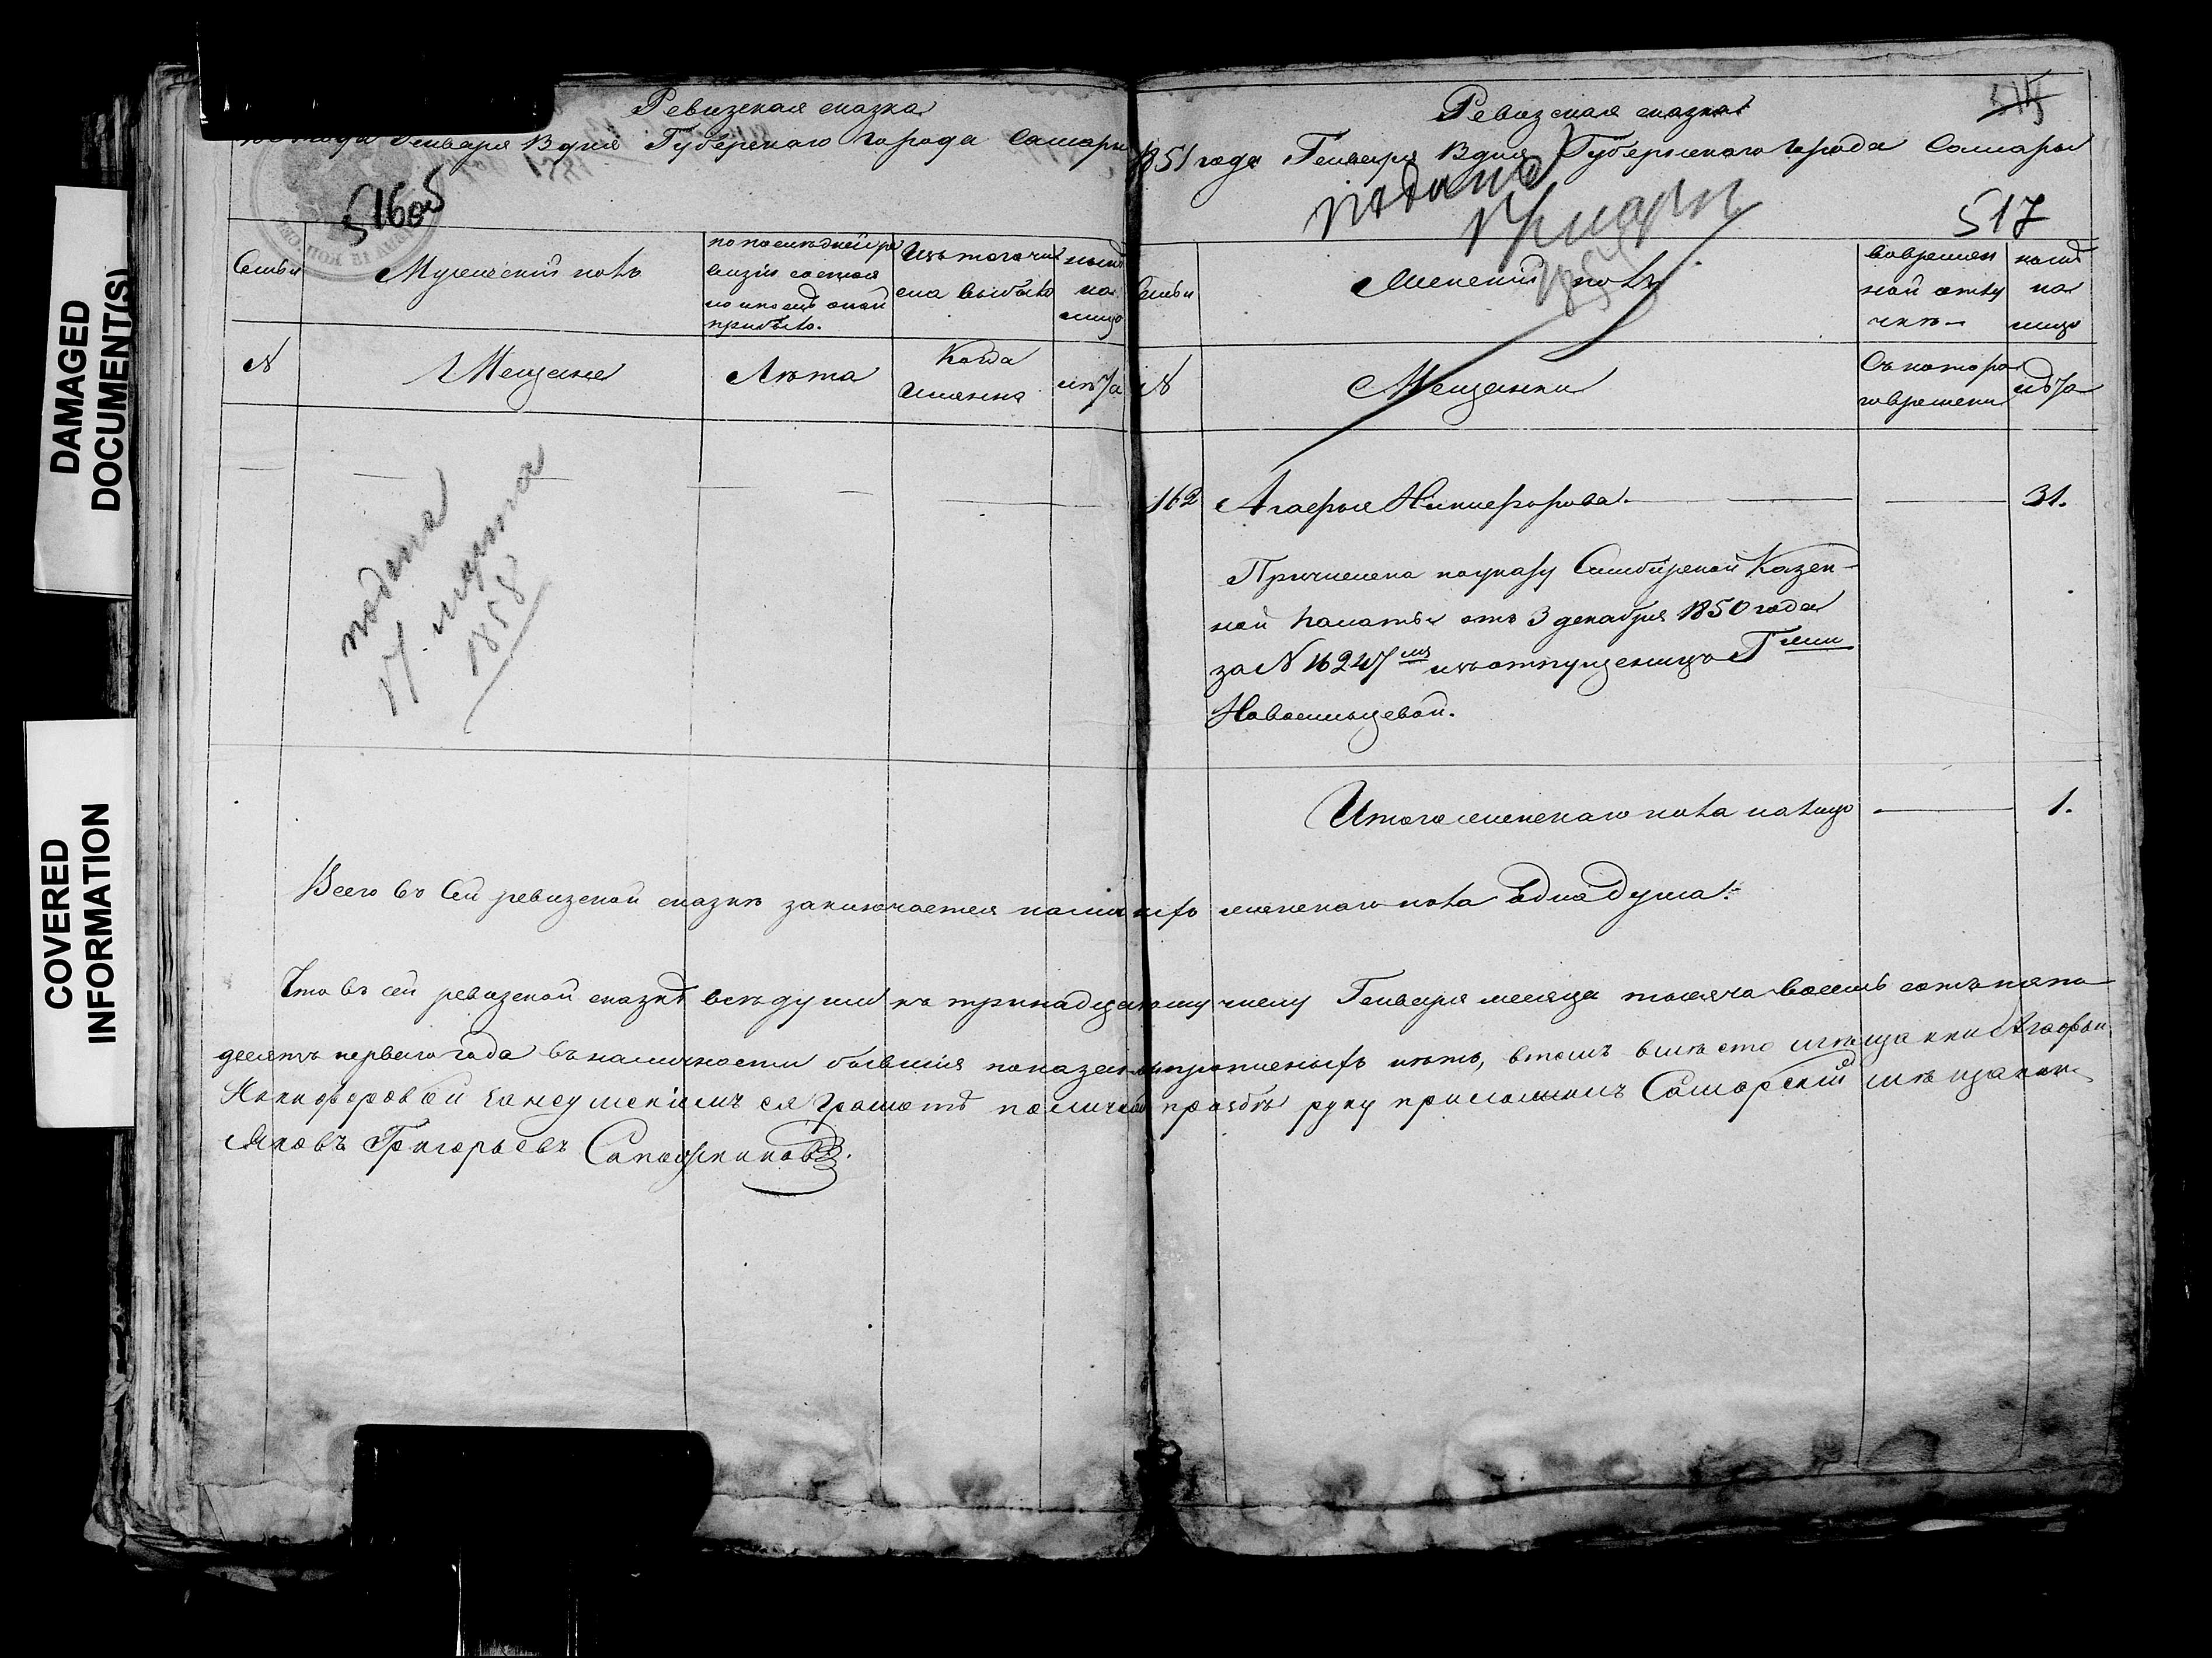 DAMAGED
DOCUMENT(S)
COVERED
INFORMATION
Ревизская сказка
года Генваря 13 дня Губернскаго города Самары
516 об
Семьи
Мужескій полъ
по последней ре
визіи состоя
ло и послѣ оной
прибыло.
Изъ того чи
сла выбыло
нынѣ
на
лицо
№
Мещане
Лѣта
Когда
Именно
лѣта
подана
17 марта
1858
Ревизская сказка
1851 года Генваря 13 дня Губернскаго города Самары
подана
17 марта
1858
517
Семьи
Женскій полъ
во времен
ной отлу
чкѣ
нынѣ
на
лицо
№
Мещанки
Съ котора
го времени
лѣта
162 Агафья Никифорова. 31.
Причислена по указу Симбирской Казен-
ной палаты отъ 3 декабря 1850 года
за № 16247 изъ отпущеницъ Г жи
Новосильцевой.
Итого женскаго пола на лицо 1.
Всего въ сей ревизской сказкѣ заключается на лицо женскаго пола одна душа.
Что въ сей ревизской сказкѣ всѣ души къ тринадцатому числу Генваря месяца тысяча восемь сотъ пять
десятъ перваго года въ наличности бывшія показаны и прописныхъ нѣтъ, втомъ вместо мѣщанки Агафьи
Никифоровой за неумѣніемъ ея грамотѣ по личной прозбѣ руку приложилъ Самарскій мѣщанинъ
Яковъ Григорьевъ Сапожниковъ.